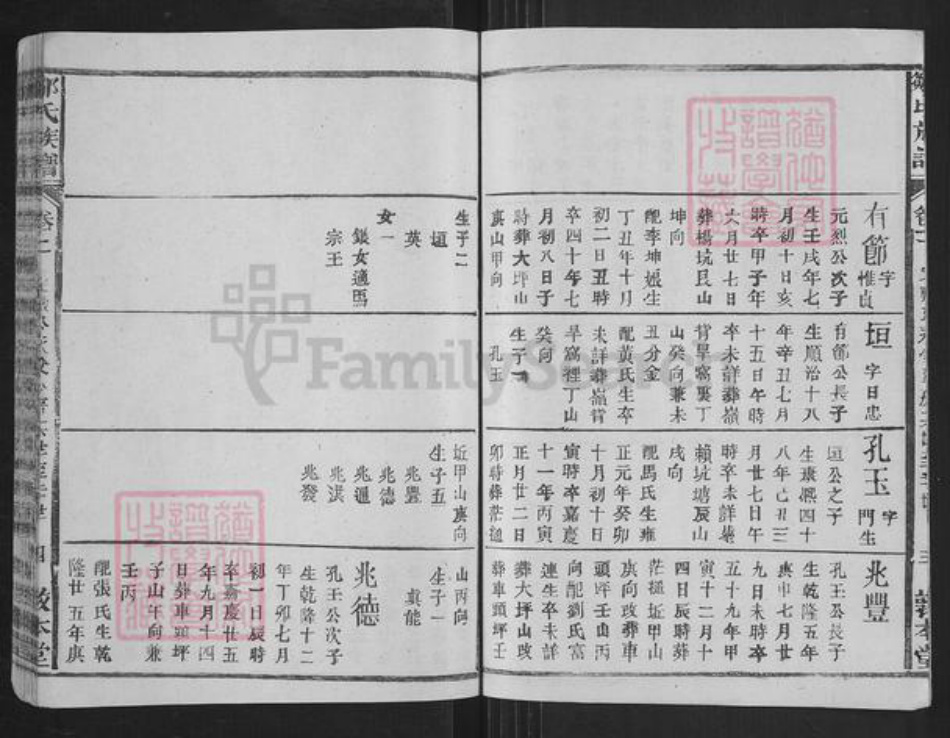 有節 字惟貞
元烈公次子
生壬戌年七
月初十日亥
時卒甲子年
六月廿七日
葬楊坑艮山
坤向
配李坤娘生
丁丑年十月
初二日丑時
卒四十年七
月初八日子
時葬大坪山
寅山甲向
生子二
垣
英
女一
銀女適馬
宗王
垣 字日忠
有節公長子
生順治十八
年辛丑七月
十五日午時
卒未詳葬嶺
背旱窩裏丁
山癸向兼未
丑分金
配黃氏生卒
未詳葬嶺背
旱窩裡丁山
癸向
生子一
孔玉
孔玉 字門生
垣公之子
生康熙四十
八年己丑三
月廿七日午
時卒未詳葬
賴坑塘辰山
戌向
配馬氏生雍
正元年癸卯
十月初十日
寅時卒嘉慶
十一年丙寅
正月廿二日
卯時葬茫通
近甲山庚向
生子五
兆豐
兆德
兆通
兆漢
兆發
兆豐
孔玉公長子
生乾隆五年
庚申七月廿
九日未時卒
五十九年甲
寅十二月十
四日辰時葬
茫通近甲山
庚向改葬車
頭坪壬山丙
向配劉氏富
連生卒未詳
葬大坪山改
葬車頭坪壬
山丙向
生子一
真能
兆德
孔玉公次子
生乾隆十二
年丁卯七月
初一日辰時
卒嘉慶廿五
年九月十四
日葬車頭坪
子山午向兼
壬丙
配張氏生乾
隆廿五年庚
鄒氏族譜
卷一
四
敦本堂
FamilySearch